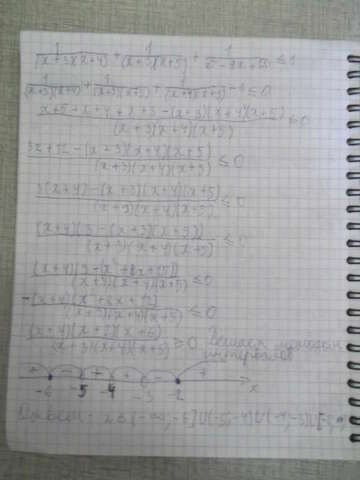 1/((x+3)(x+4)) + 1/((x+3)(x+5)) + 1/ ≤ 1
1/((x+3)(x+4)) + 1/((x+3)(x+5)) + 1/((x+4)(x+5)) - 1 ≤ 0
(x+5 + x+4 + x+3 - (x+3)(x+4)(x+5))/((x+3)(x+4)(x+5)) ≤ 0
(3x+12 - (x+3)(x+4)(x+5))/((x+3)(x+4)(x+5)) ≤ 0
(3(x+4) - (x+3)(x+4)(x+5))/((x+3)(x+4)(x+5)) ≤ 0
((x+4)(3 - (x+3)(x+5)))/((x+3)(x+4)(x+5)) ≤ 0
((x+4)(3 - (x²+8x+15)))/((x+3)(x+4)(x+5)) ≤ 0
-(x+4)(x²+8x+12)/((x+3)(x+4)(x+5)) ≤ 0
(x+4)(x+2)(x+6)/((x+3)(x+4)(x+5)) ≥ 0 Решаем методом
интервалов
+ - + + - +
-6 -5 -4 -3 -2 x
Ответ: (-∞; -6] ∪ (-5; -4) ∪ (-4; -3) ∪ [-2;